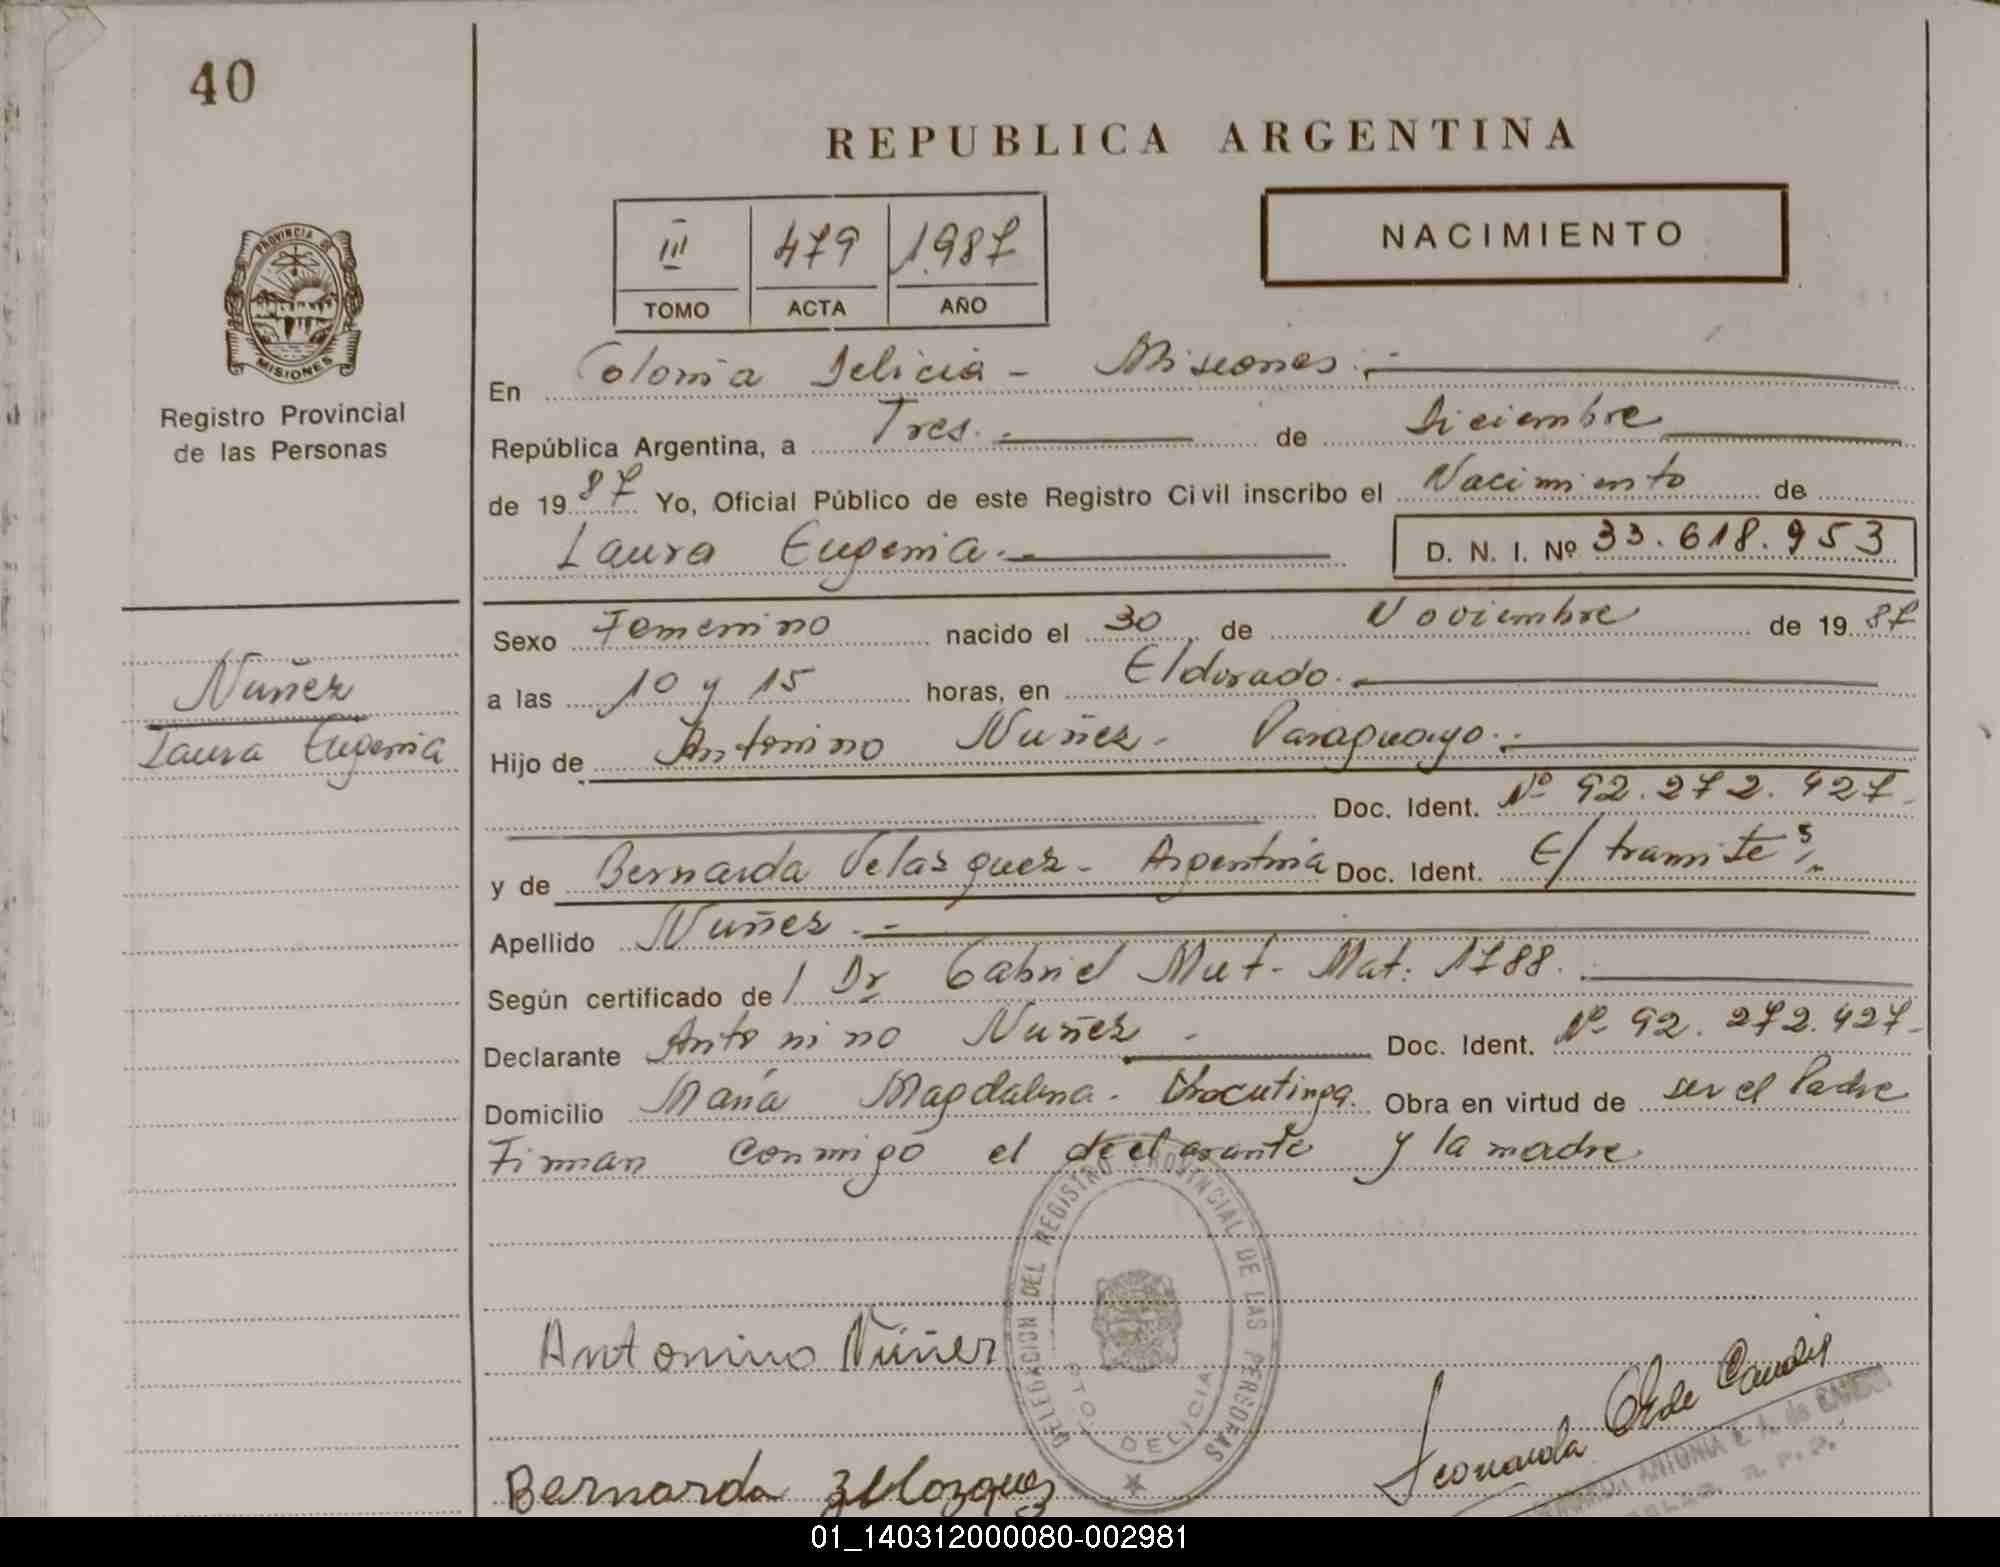 40
REPUBLICA ARGENTINA
III 479 1987
TOMO ACTA AÑO
NACIMIENTO
PROVINCIA DE
MISIONES
Registro Provincial
de las Personas
En Colonia Delicia - Misiones.-
República Argentina, a Tres.- de Diciembre
de 1987 Yo, Oficial Público de este Registro Civil inscribo el Nacimiento de
Laura Eugenia.- D. N. I. Nº 33.618.953
Sexo Femenino nacido el 30 de Noviembre de 1987
a las 10 y 15 horas, en Eldorado.
Nuñez
Laura Eugenia
Hijo de Antonino Nuñez - Paraguayo.-
Doc. Ident. Nº 92.272.427-
y de Bernarda Velazquez - Argentina Doc. Ident. E/ tramite
Apellido Nuñez.-
Según certificado de / Dr Gabriel Mut- Mat: 1788.
Declarante Antonino Nuñez - Doc. Ident. Nº 92.272.427-
Domicilio María Magdalena. Obra en virtud de ser el Padre
Firman conmigo el declarante y la madre
DELEGACION DEL REGISTRO PROVINCIAL DE LAS PERSONAS
PTO. DELICIA
Antonino Nuñez
Bernarda Velazquez
01_140312000080-002981